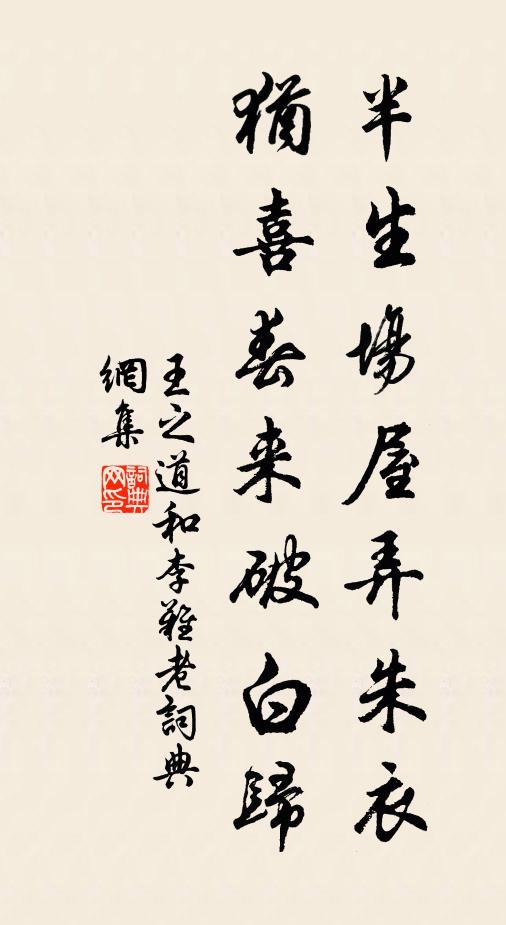 半生場屋弄朱衣
猶喜春来破白歸
王之道和李難老詞典
網集
詞典網印